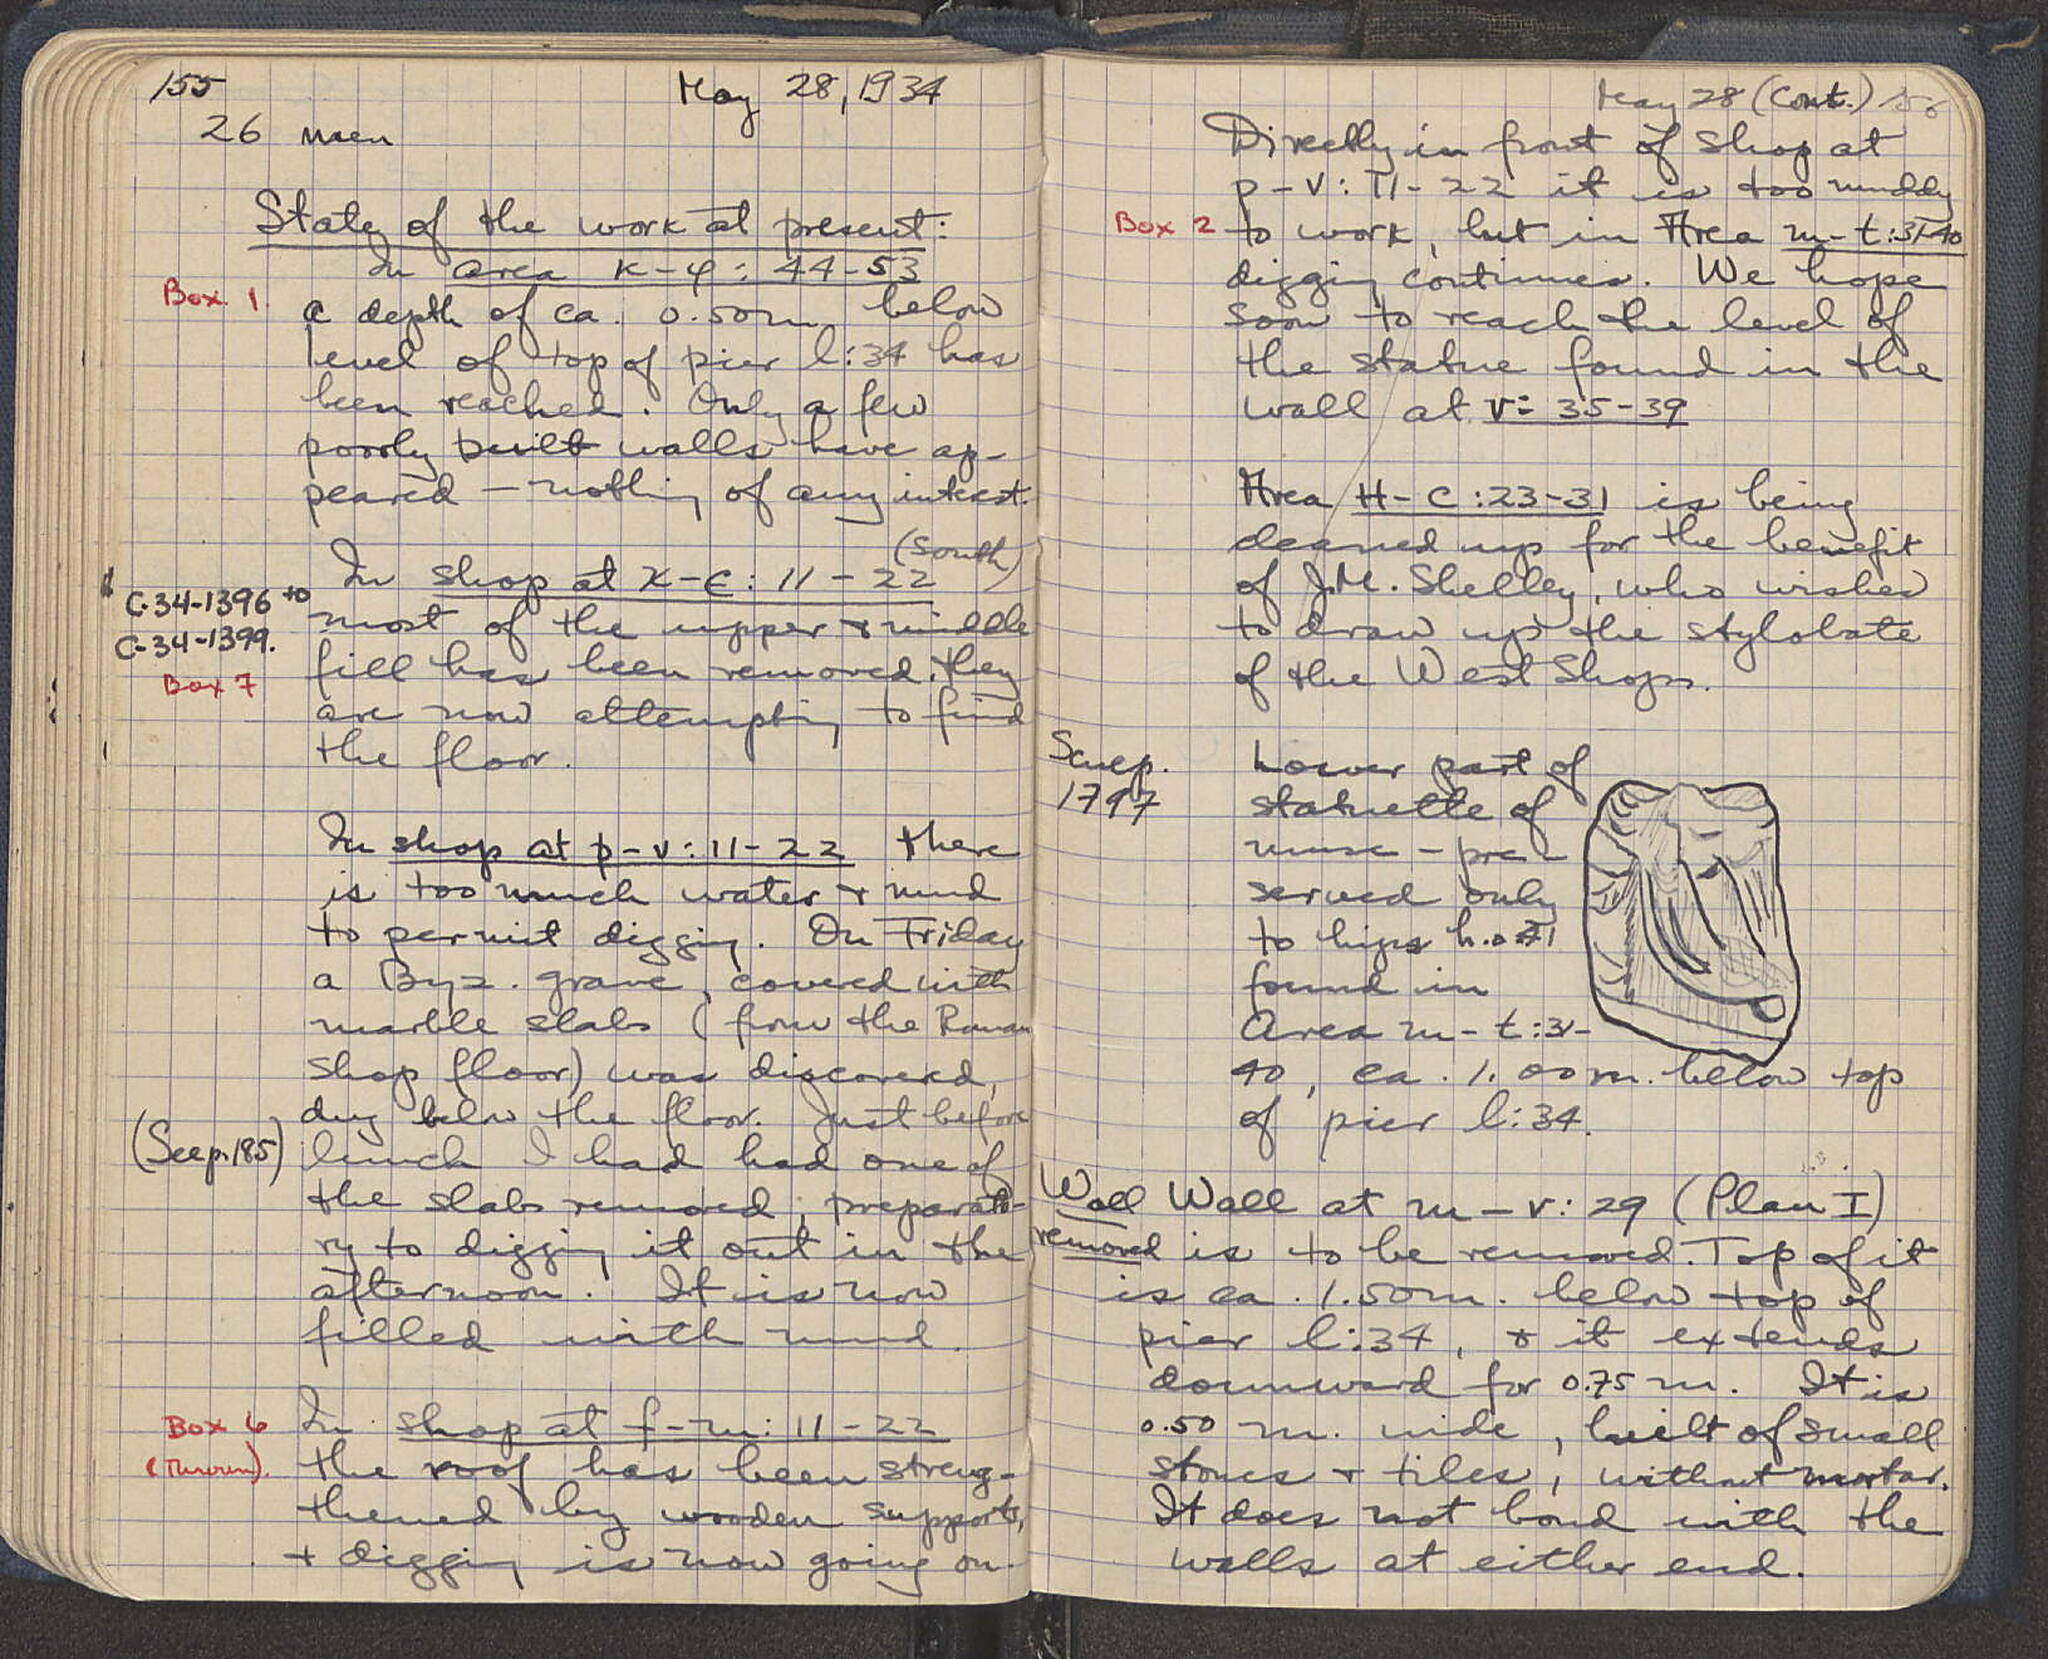 155
May 28, 1934
26 men
State of the work at present:
In area K-φ: 44-53
Box 1
a depth of ca. 0.50 m below
level of top of pier l:34 has
been reached. Only a few
poorly built walls have ap-
peared — nothing of any interest.
(South)
In shop at X-E: 11-22
C-34-1396 to
C-34-1399.
Box 7
most of the upper + middle
fill has been removed. they
are now attempting to find
the floor.
In shop at p-v: 11-22 there
is too much water + mud
to permit digging. On Friday
a Byz. grave, covered with
marble slabs (from the Roman
shop floor) was discovered,
dug below the floor. Just before
(See p. 185)
lunch I had had one of
the slabs removed, preparato-
ry to digging it out in the
afternoon. It is now
filled with mud.
Box 6
In shop at f-m: 11-22
the roof has been streng-
thened by wooden supports,
+ digging is now going on.
May 28 (cont.) 156
Directly in front of shop at
p-v: 11-22 it is too muddy
Box 2
to work, but in Area m-t:31-40
digging continues. We hope
soon to reach the level of
the statue found in the
wall at v: 35-39
Area H-C:23-31 is being
cleaned up for the benefit
of J.M. Shelley, who wishes
to draw up the stylobate
of the West Shops.
1797
Lower part of
statuette of
muse - pre-
served only
to hips h.
found in
Area m-t:31-
40, ca. 1.00 m. below top
of pier l:34.
Wall
removed
Wall at m-v: 29 (Plan I)
is to be removed. Top of it
is ca. 1.50 m. below top of
pier l:34, + it extends
downward for 0.75 m. It is
0.50 m. wide, built of small
stones + tiles, without mortar.
It does not bond with the
walls at either end.